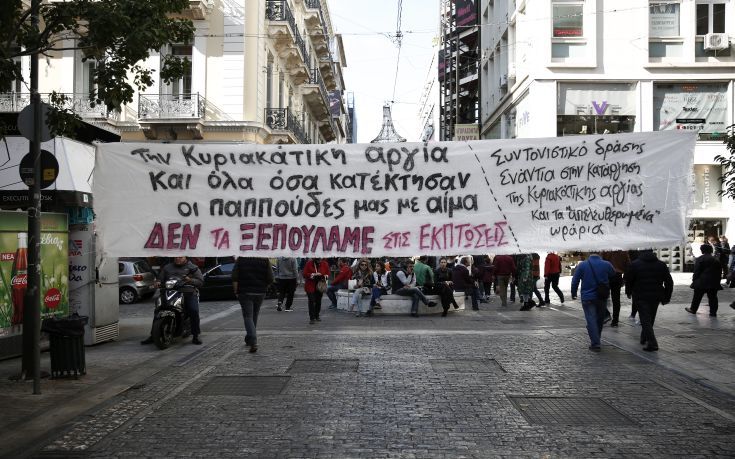 Την Κυριακάτικη αργία
Και όλα όσα κατέκτησαν
οι παππούδες μας με αίμα
ΔΕΝ ΤΑ ΞΕΠΟΥΛΑΜΕ ΣΤΙΣ ΕΚΠΤΩΣΕΙΣ
Συντονιστικό δράσης
Ενάντια στην κατάργηση
της Κυριακάτικης αργίας
Και τα "απελευθερωμένα"
ωράρια
EVE
ΝΕΑ
Coca-Cola